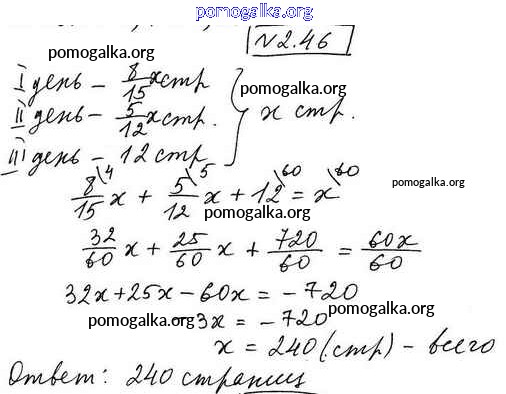 pomogalka.org
N 2.46
pomogalka.org
I день – 8/15 x стр
pomogalka.org
II день – 5/12 x стр. } x стр.
III день – 12 стр
8/15\4 x + 5/12\5 x + 12\60 = x\60
pomogalka.org
pomogalka.org
32/60 x + 25/60 x + 720/60 = 60x/60
32x + 25x – 60x = – 720
pomogalka.org
pomogalka.org
–3x = – 720
x = 240 (стр) – всего
pomogalka.org
Ответ: 240 страниц